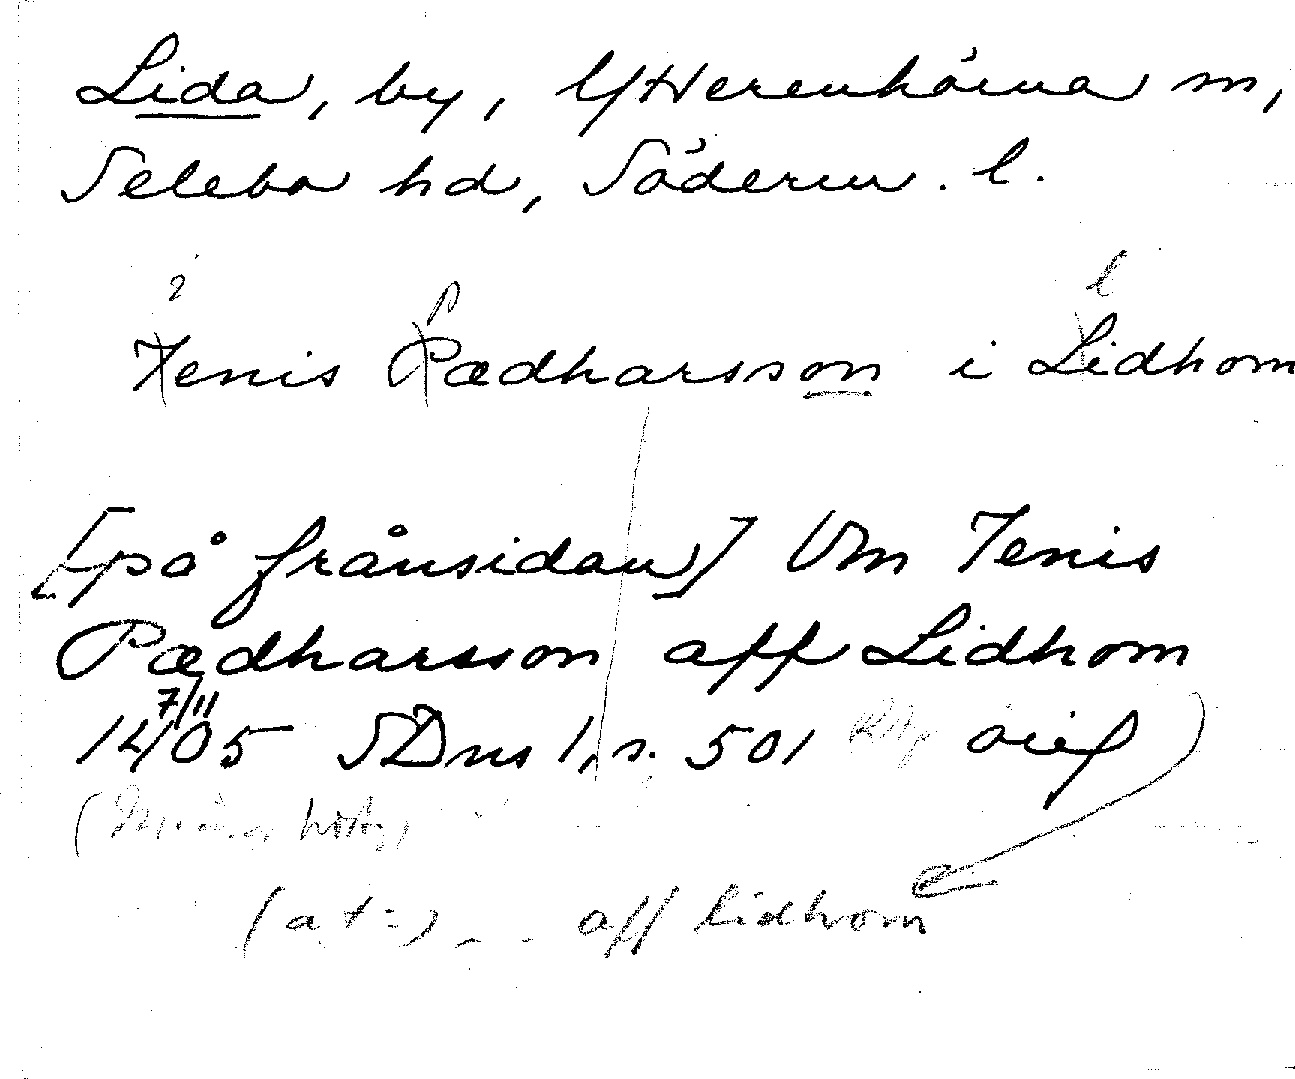 Lida, by, Ytterenhörna sn,
Selebo hd, Söderm. l.
i p l
Jenis Pædharsson i Lidhom
[på frånsidan] Um Jenis
Pædharsson aff Lidhom
7/11
1405 SDns 1, s. 501 orig
(at:) - - aff lidhom